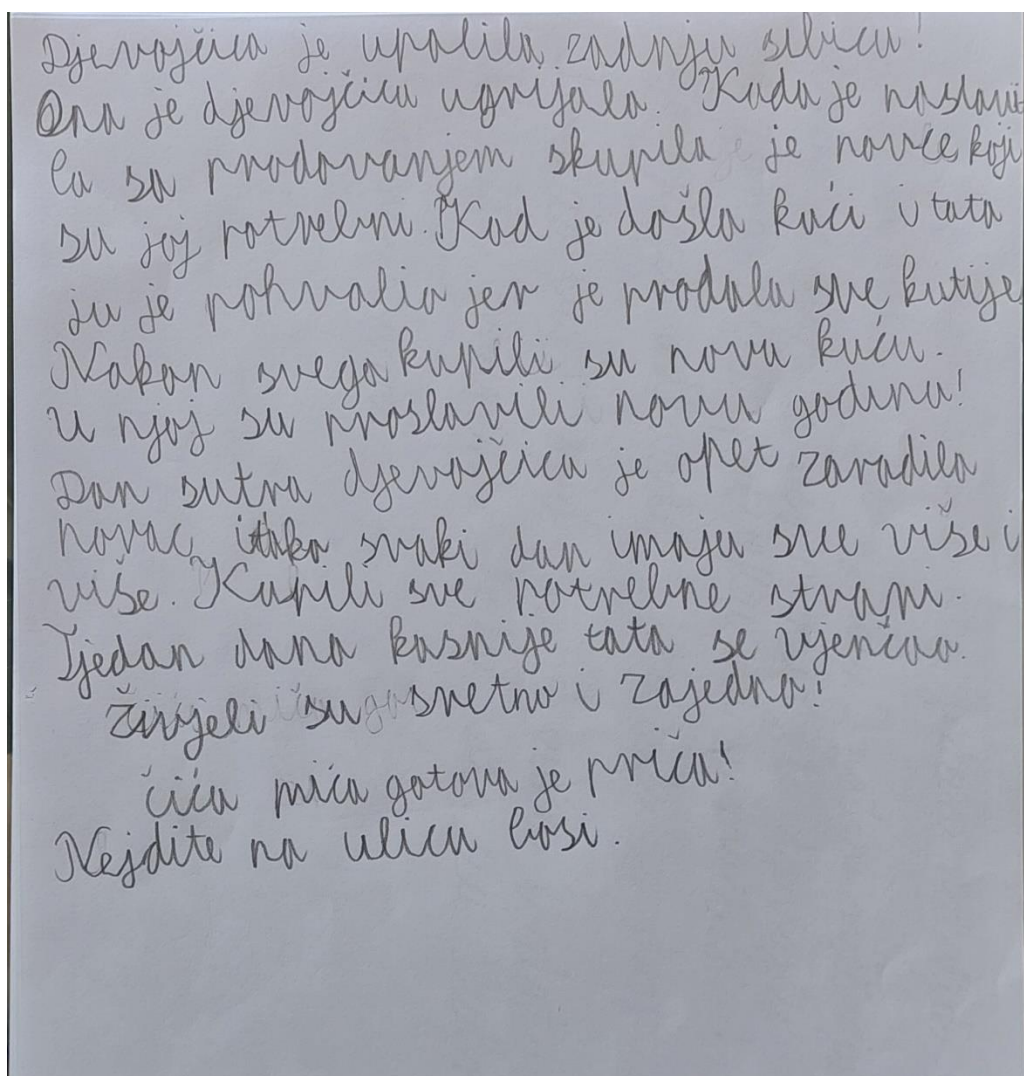 Djevojčica je upalila zadnju šibicu!
Ona je djevojčicu ugrijala. Kada je nastavi
la sa prodavanjem skupila je novce koji
su joj potrebni. Kad je došla kući i tata
ju je pohvalio jer je prodala sve kutije
Nakon svega kupili su novu kuću.
U njoj su proslavili novu godinu!
Dan sutra djevojčica je opet zaradila
novac, i tako svaki dan imaju sve više i
više. Kupili sve potrebne stvari.
Tjedan dana kasnije tata se vjenčao.
Živjeli su sretno i zajedno!
čića mića gotova je priča!
Nejdite na ulicu bosi.